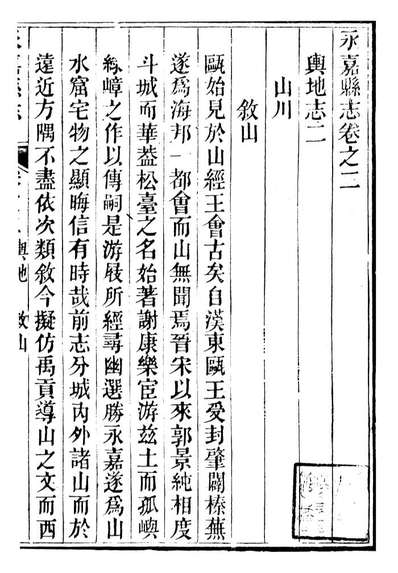 永嘉縣志卷之二
輿地志二
山川
敘山
甌始見於山經王會古矣自漢東甌王受封肇闢榛蕪
遂爲海邦一都會而山無聞焉晉宋以來郭景純相度
斗城而華蓋松臺之名始著謝康樂宦游兹土而孤嶼
綠嶂之作以傳嗣是游屐所經尋幽選勝永嘉遂爲山
水窟宅物之顯晦信有時哉前志分城內外諸山而於
遠近方隅不盡依次類敘今擬仿禹貢導山之文而西
輿地 敘山